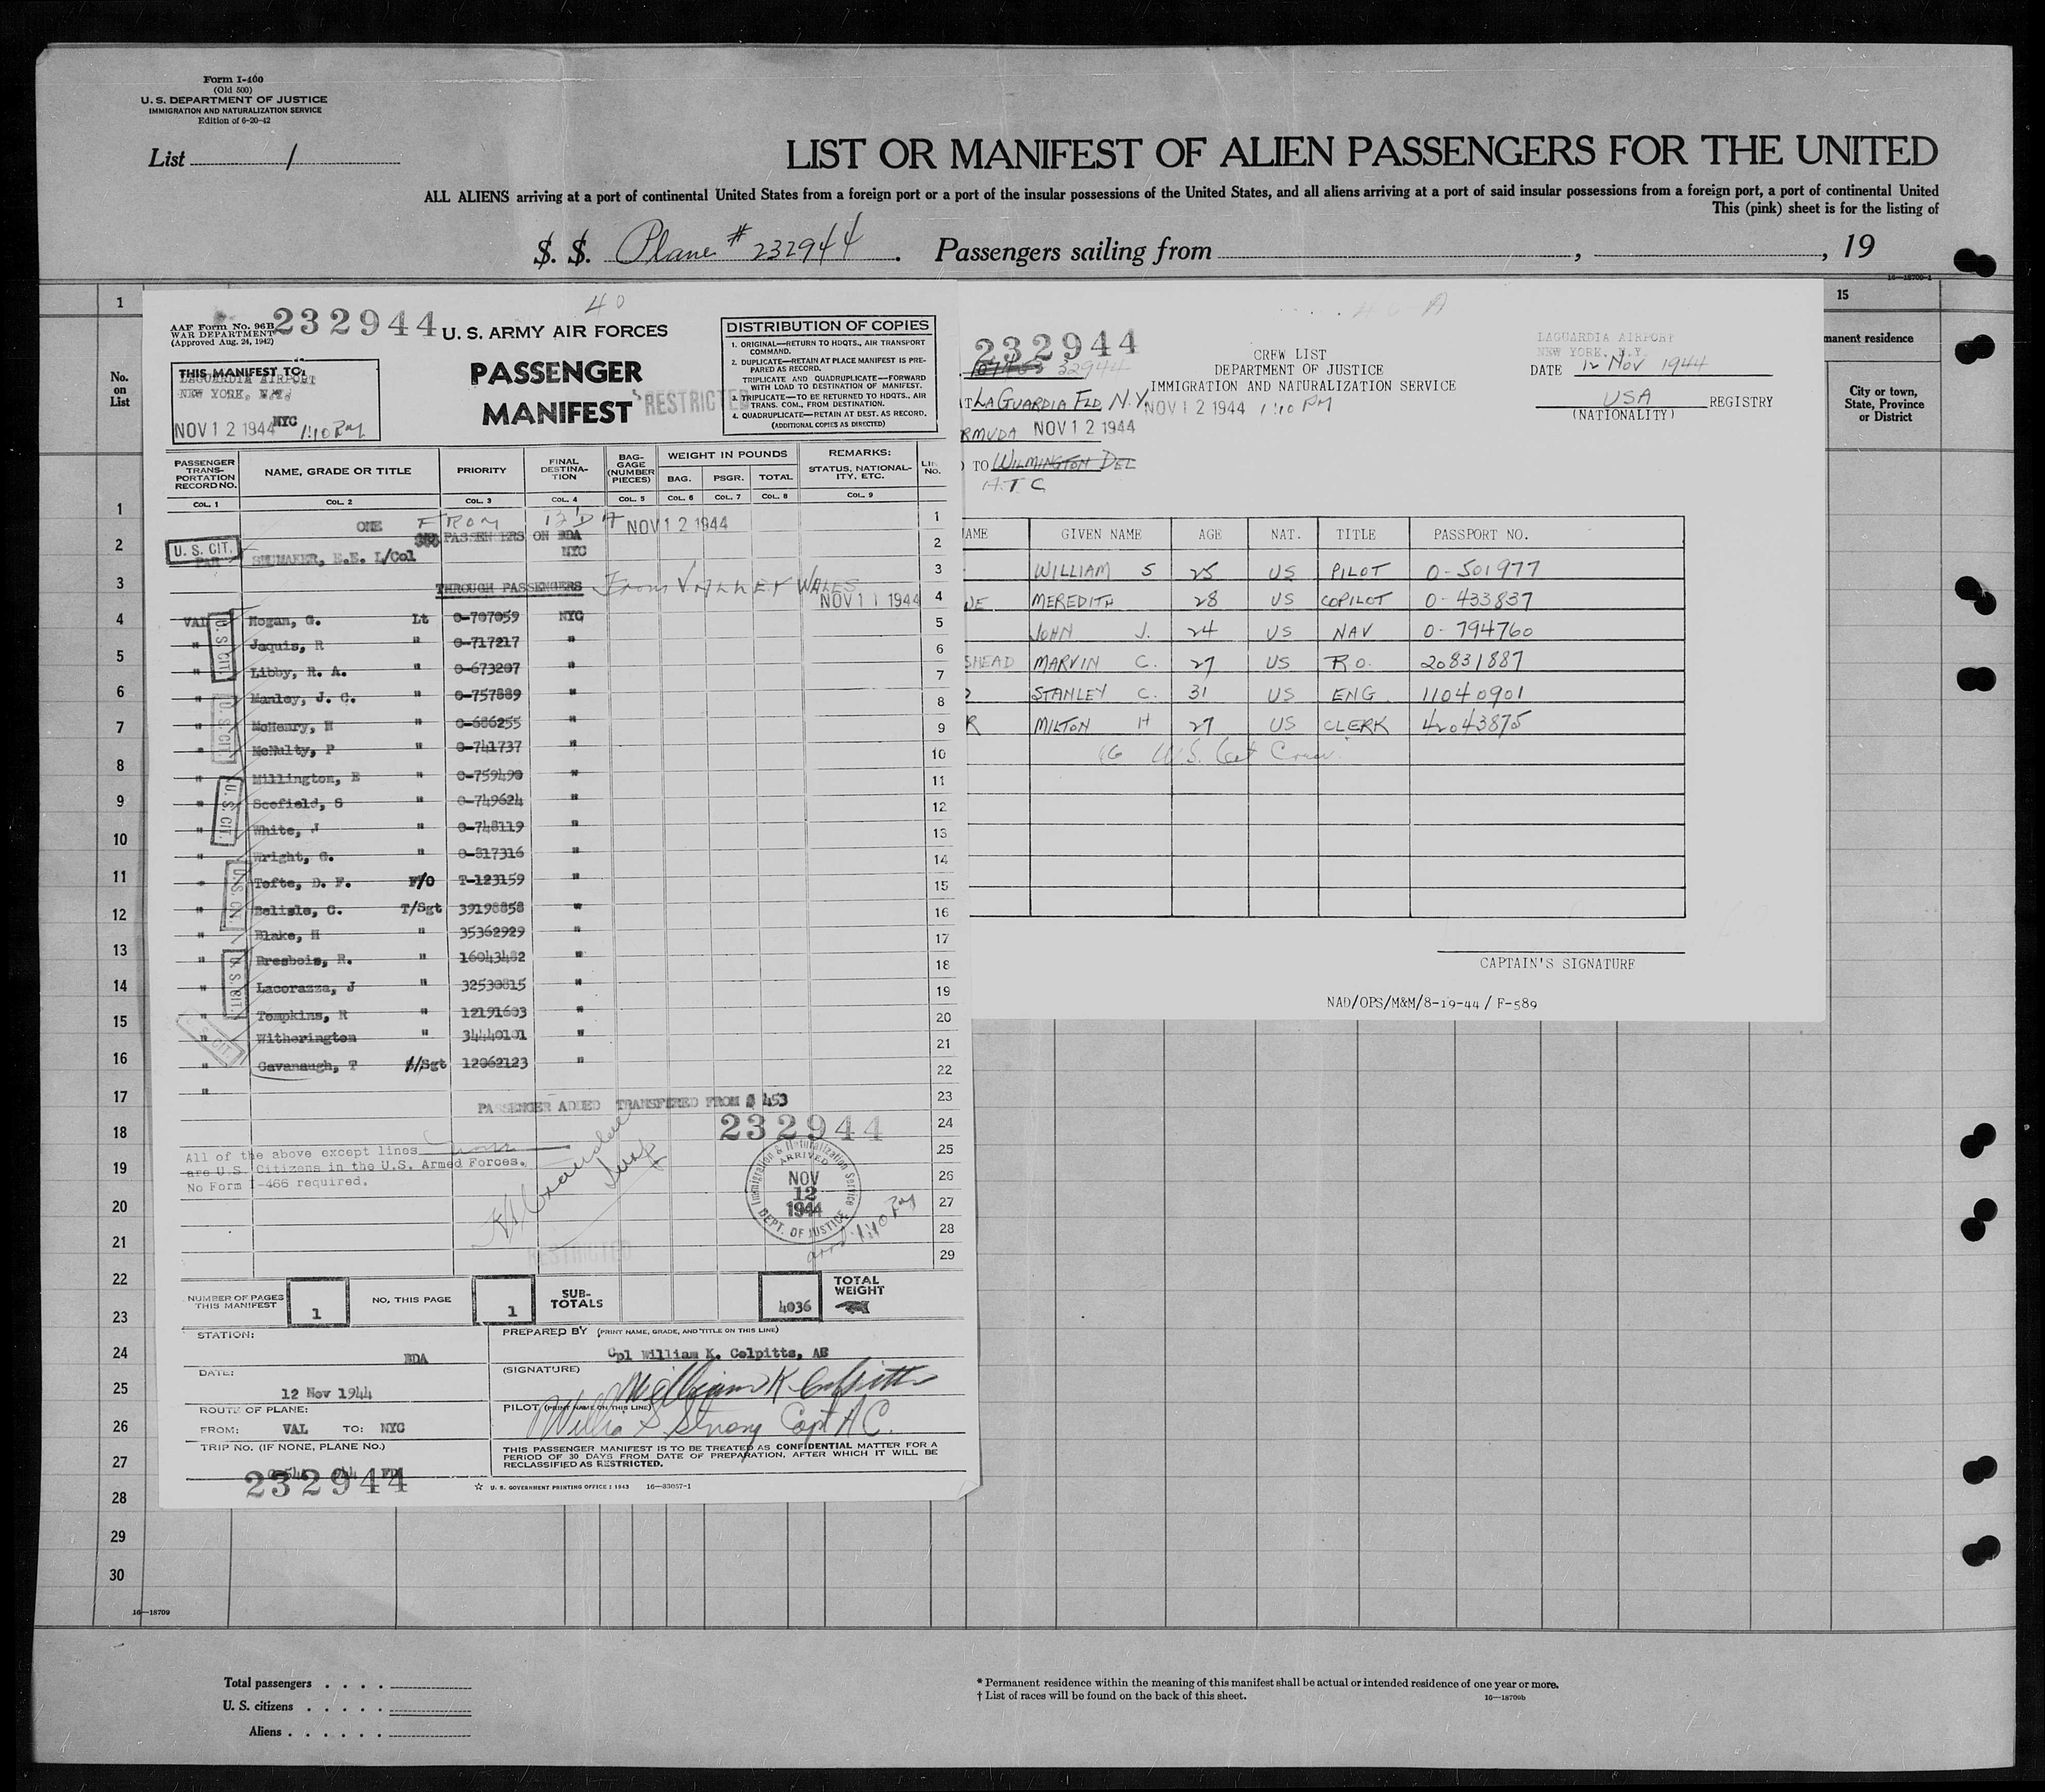 Form I-460
(Old 500)
U. S. DEPARTMENT OF JUSTICE
IMMIGRATION AND NATURALIZATION SERVICE
Edition of 6-20-42
List 1
LIST OR MANIFEST OF ALIEN PASSENGERS FOR THE UNITED
ALL ALIENS arriving at a port of continental United States from a foreign port or a port of the insular possessions of the United States, and all aliens arriving at a port of said insular possessions from a foreign port, a port of continental United
This (pink) sheet is for the listing of
S. S. Plane # 232944. Passengers sailing from , , 19
16—18709-1
1
15
No. on List
manent residence
City or town, State, Province or District
40
AAF Form No. 96B
WAR DEPARTMENT
(Approved Aug. 24, 1942)
232944
U. S. ARMY AIR FORCES
PASSENGER
MANIFEST
RESTRICTED
THIS MANIFEST TO:
LAGUARDIA AIRPORT
NEW YORK, N.Y.
NYC
NOV 12 1944 1:10 PM
DISTRIBUTION OF COPIES
1. ORIGINAL—RETURN TO HDQTS., AIR TRANSPORT COMMAND.
2. DUPLICATE—RETAIN AT PLACE MANIFEST IS PREPARED AS RECORD.
TRIPLICATE AND QUADRUPLICATE—FORWARD WITH LOAD TO DESTINATION OF MANIFEST.
3. TRIPLICATE—TO BE RETURNED TO HDQTS., AIR TRANS. COM., FROM DESTINATION.
4. QUADRUPLICATE—RETAIN AT DEST. AS RECORD.
(ADDITIONAL COPIES AS DIRECTED)
PASSENGER TRANSPORTATION RECORD NO. NAME, GRADE OR TITLE PRIORITY FINAL DESTINATION BAGGAGE (NUMBER PIECES) WEIGHT IN POUNDS BAG. PSGR. TOTAL REMARKS: STATUS, NATIONALITY, ETC. NO.
COL. 1 COL. 2 COL. 3 COL. 4 COL. 5 COL. 6 COL. 7 COL. 8 COL. 9
FROM NOV 12 1944
ONE PASSENGERS ON BDA
U. S. CIT. SHUMAKER, E.E. L/Col NYC
THROUGH PASSENGERS From VALLEY WALES
NOV 11 1944
VAL Hogan, G. Lt O-707059 NYC
" Jaquis, R " O-717217 "
" Libby, R. A. " O-673207 "
" Manley, J. C. " O-757889 "
" McHenry, H " O-686255 "
" McNulty, P " O-741737 "
" Millington, E " O-759490 "
" Scofield, S " O-749624 "
" White, J " O-748119 "
" Wright, G. " O-817316 "
" Tofte, D. F. F/O T-123159 "
" Belisle, C. T/Sgt 39198858 "
" Blake, H " 35362929 "
" Dresbois, R. " 16043482 "
" Lacorazza, J " 32530815 "
" Tompkins, R " 12191603 "
" Witherington " 34440101 "
" Cavanaugh, T S/Sgt 12062123 "
"
U. S. CIT.
U. S. CIT.
U. S. CIT.
U. S. CIT.
U. S. CIT.
U. S. CIT.
PASSENGER ADDED TRANSFERED FROM # 453
232944
All of the above except lines none
are U.S. Citizens in the U.S. Armed Forces.
No Form I-466 required.
Immigration & Naturalization Service
ARRIVED
NOV
12
1944
DEPT. OF JUSTICE
arrd. 1:10 PM
RESTRICTED
NUMBER OF PAGES THIS MANIFEST 1 NO. THIS PAGE 1 SUB-TOTALS 4036 TOTAL WEIGHT
STATION: BDA
PREPARED BY (PRINT NAME, GRADE, AND TITLE ON THIS LINE)
Cpl William K. Colpitts, AE
DATE: 12 Nov 1944
(SIGNATURE) William K Colpitts
ROUTE OF PLANE:
PILOT (PRINT NAME ON THIS LINE) Willia S Strong Capt A C.
FROM: VAL TO: NYC
TRIP NO. (IF NONE, PLANE NO.)
232944
THIS PASSENGER MANIFEST IS TO BE TREATED AS CONFIDENTIAL MATTER FOR A PERIOD OF 30 DAYS FROM DATE OF PREPARATION, AFTER WHICH IT WILL BE RECLASSIFIED AS RESTRICTED.
☆ U. S. GOVERNMENT PRINTING OFFICE : 1943 16—33057-1
40 A
232944
32944
CREW LIST
DEPARTMENT OF JUSTICE
IMMIGRATION AND NATURALIZATION SERVICE
LAGUARDIA AIRPORT
NEW YORK, N.Y.
DATE 12 NOV 1944
AT LAGUARDIA FLD N.Y. NOV 12 1944 1:10 PM
USA REGISTRY
(NATIONALITY)
RMUDA NOV 12 1944
TO WILMINGTON DEL
A.T.C
AME GIVEN NAME AGE NAT. TITLE PASSPORT NO.
WILLIAM S 25 US PILOT O-501977
UE MEREDITH 28 US COPILOT O-433837
JOHN J. 24 US NAV O-794760
SHEAD MARVIN C. 27 US R.O. 20831887
STANLEY C. 31 US ENG 11040901
R MILTON H 27 US CLERK 42043875
U.S. Cit Crew
CAPTAIN'S SIGNATURE
NAD/OPS/M&M/8-19-44 / F-589
1
2
3
4
5
6
7
8
9
10
11
12
13
14
15
16
17
18
19
20
21
22
23
24
25
26
27
28
29
30
16—18709
Total passengers
U. S. citizens
Aliens
* Permanent residence within the meaning of this manifest shall be actual or intended residence of one year or more.
† List of races will be found on the back of this sheet.
16—18709b